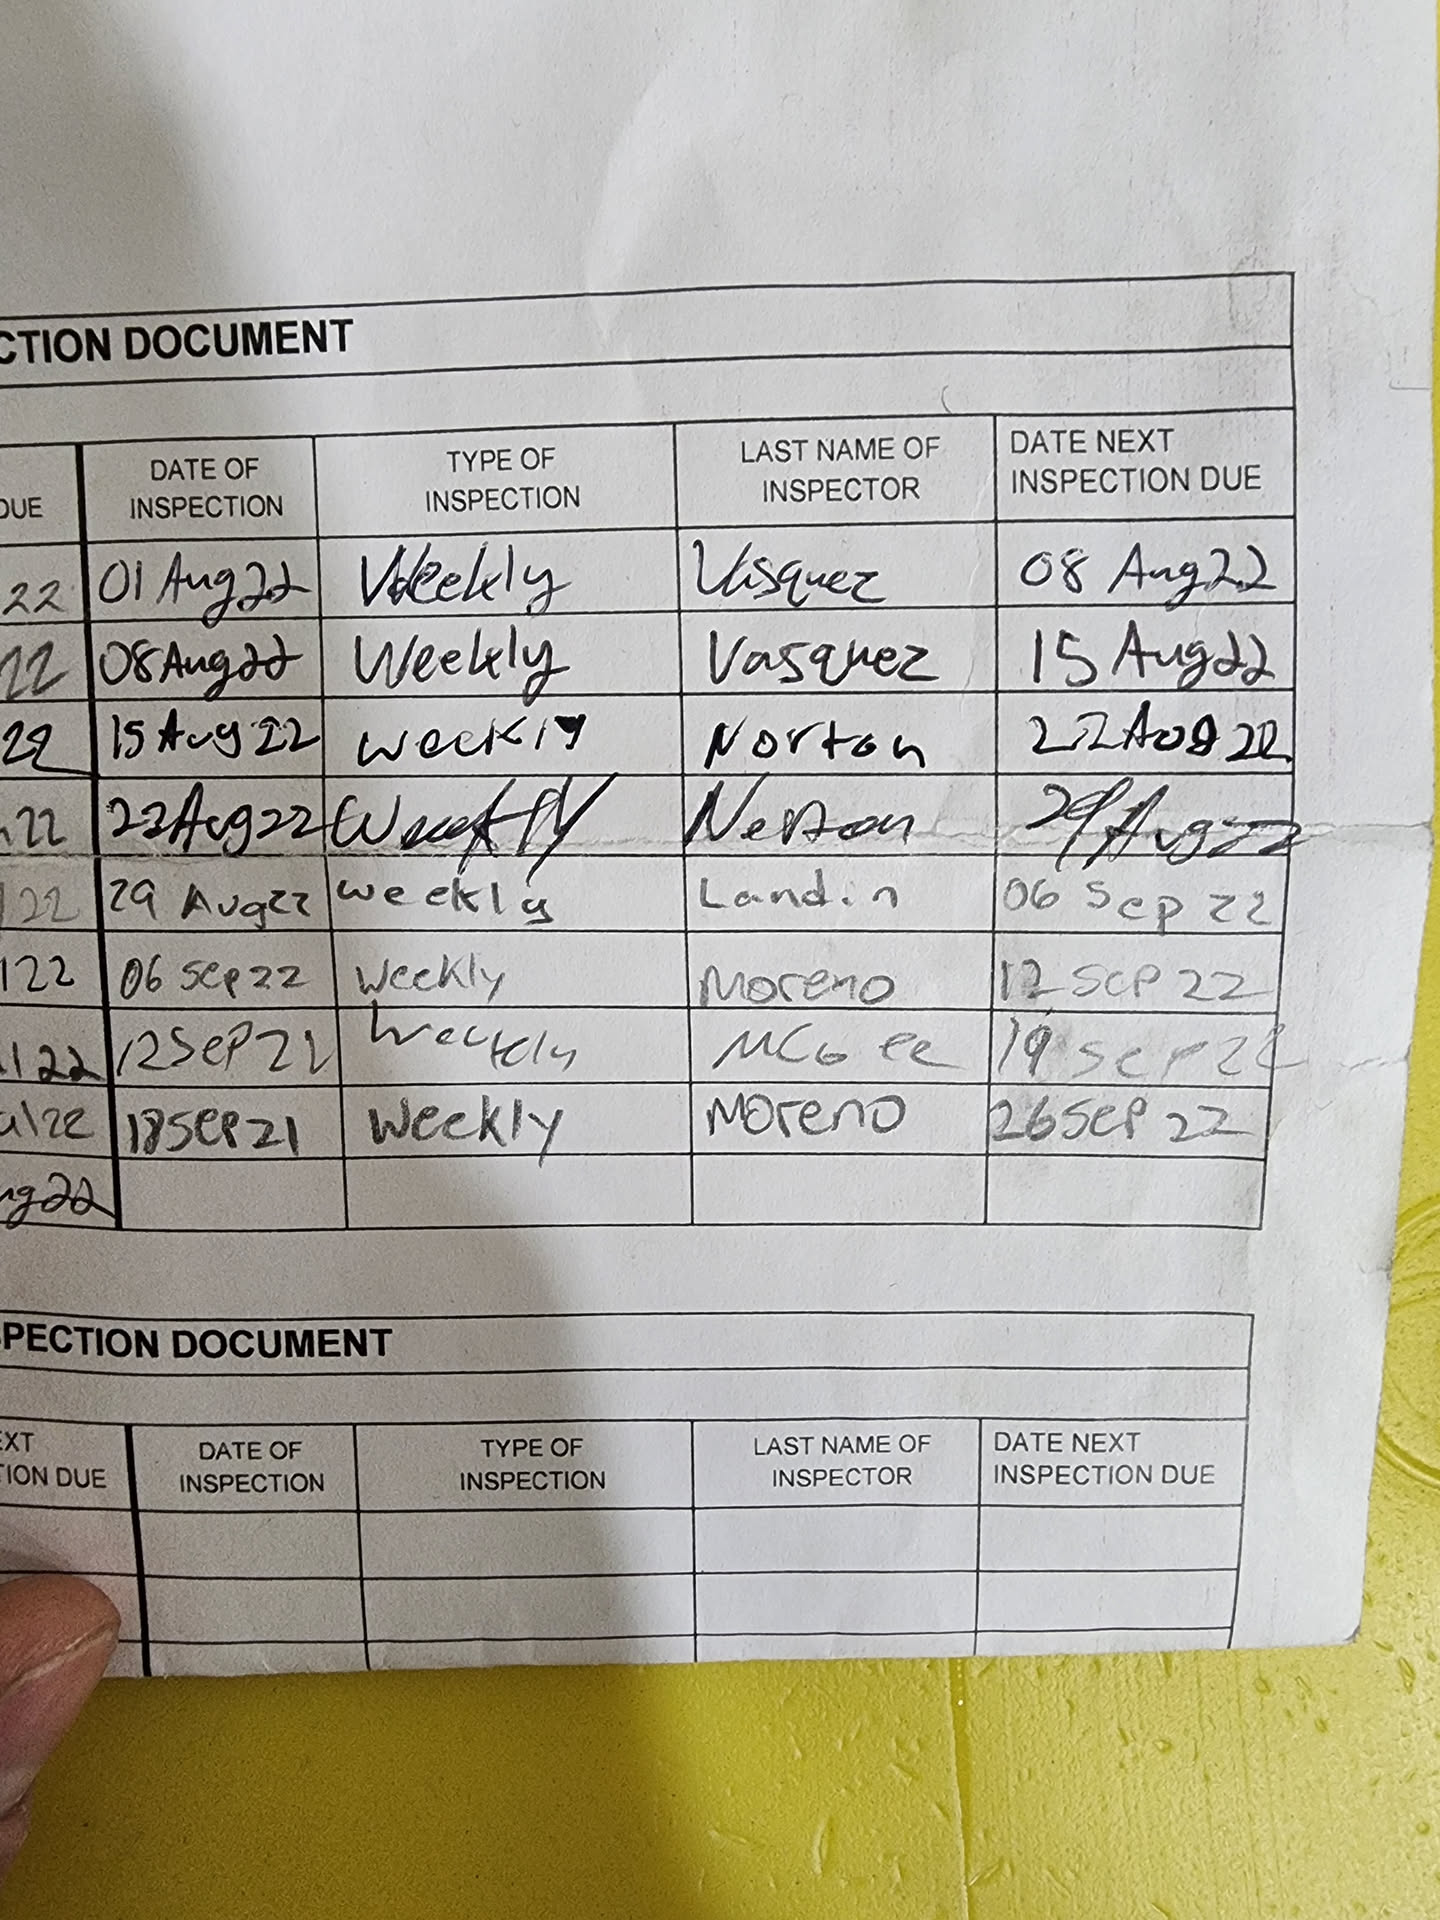 CTION DOCUMENT
DUE DATE OF INSPECTION TYPE OF INSPECTION LAST NAME OF INSPECTOR DATE NEXT INSPECTION DUE
22 01 Aug 22 Weekly Vasquez 08 Aug 22
22 08 Aug 22 Weekly Vasquez 15 Aug 22
22 15 Aug 22 weekly Norton 22 Aug 22
22 22 Aug 22 Weekly Norton 29 Aug 22
22 29 Aug 22 weekly Landin 06 Sep 22
22 06 Sep 22 Weekly Moreno 12 Sep 22
22 12 Sep 22 Weekly McGee 19 Sep 22
ul 22 Sep 21 Weekly Moreno 26 Sep 22
ug 22
PECTION DOCUMENT
EXT TION DUE DATE OF INSPECTION TYPE OF INSPECTION LAST NAME OF INSPECTOR DATE NEXT INSPECTION DUE